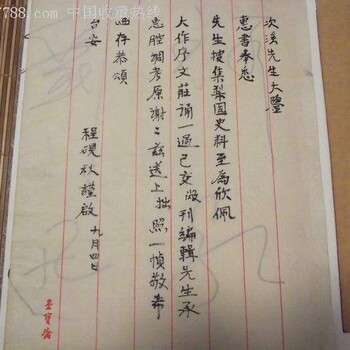 次溪先生大鑒
惠書奉悉
先生搜集梨園史料至為欣佩
大作序文莊誦一過已交敝刊編輯先生承
惠腔調考原謝〻茲送上拙照一幀敬希
哂存恭頌
台安
程硯秋謹啟 九月四日
7788.com 中国收藏热线